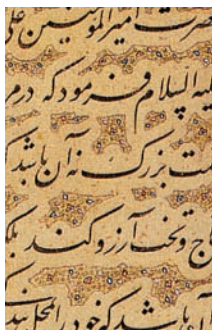 حضرت امیرالمؤمنین علی
علیه السلام فرمود که در مر
همت بزرگ نه آن باشد که
تاج و تخت آرزو کند بلکه
آن باشد که خود را